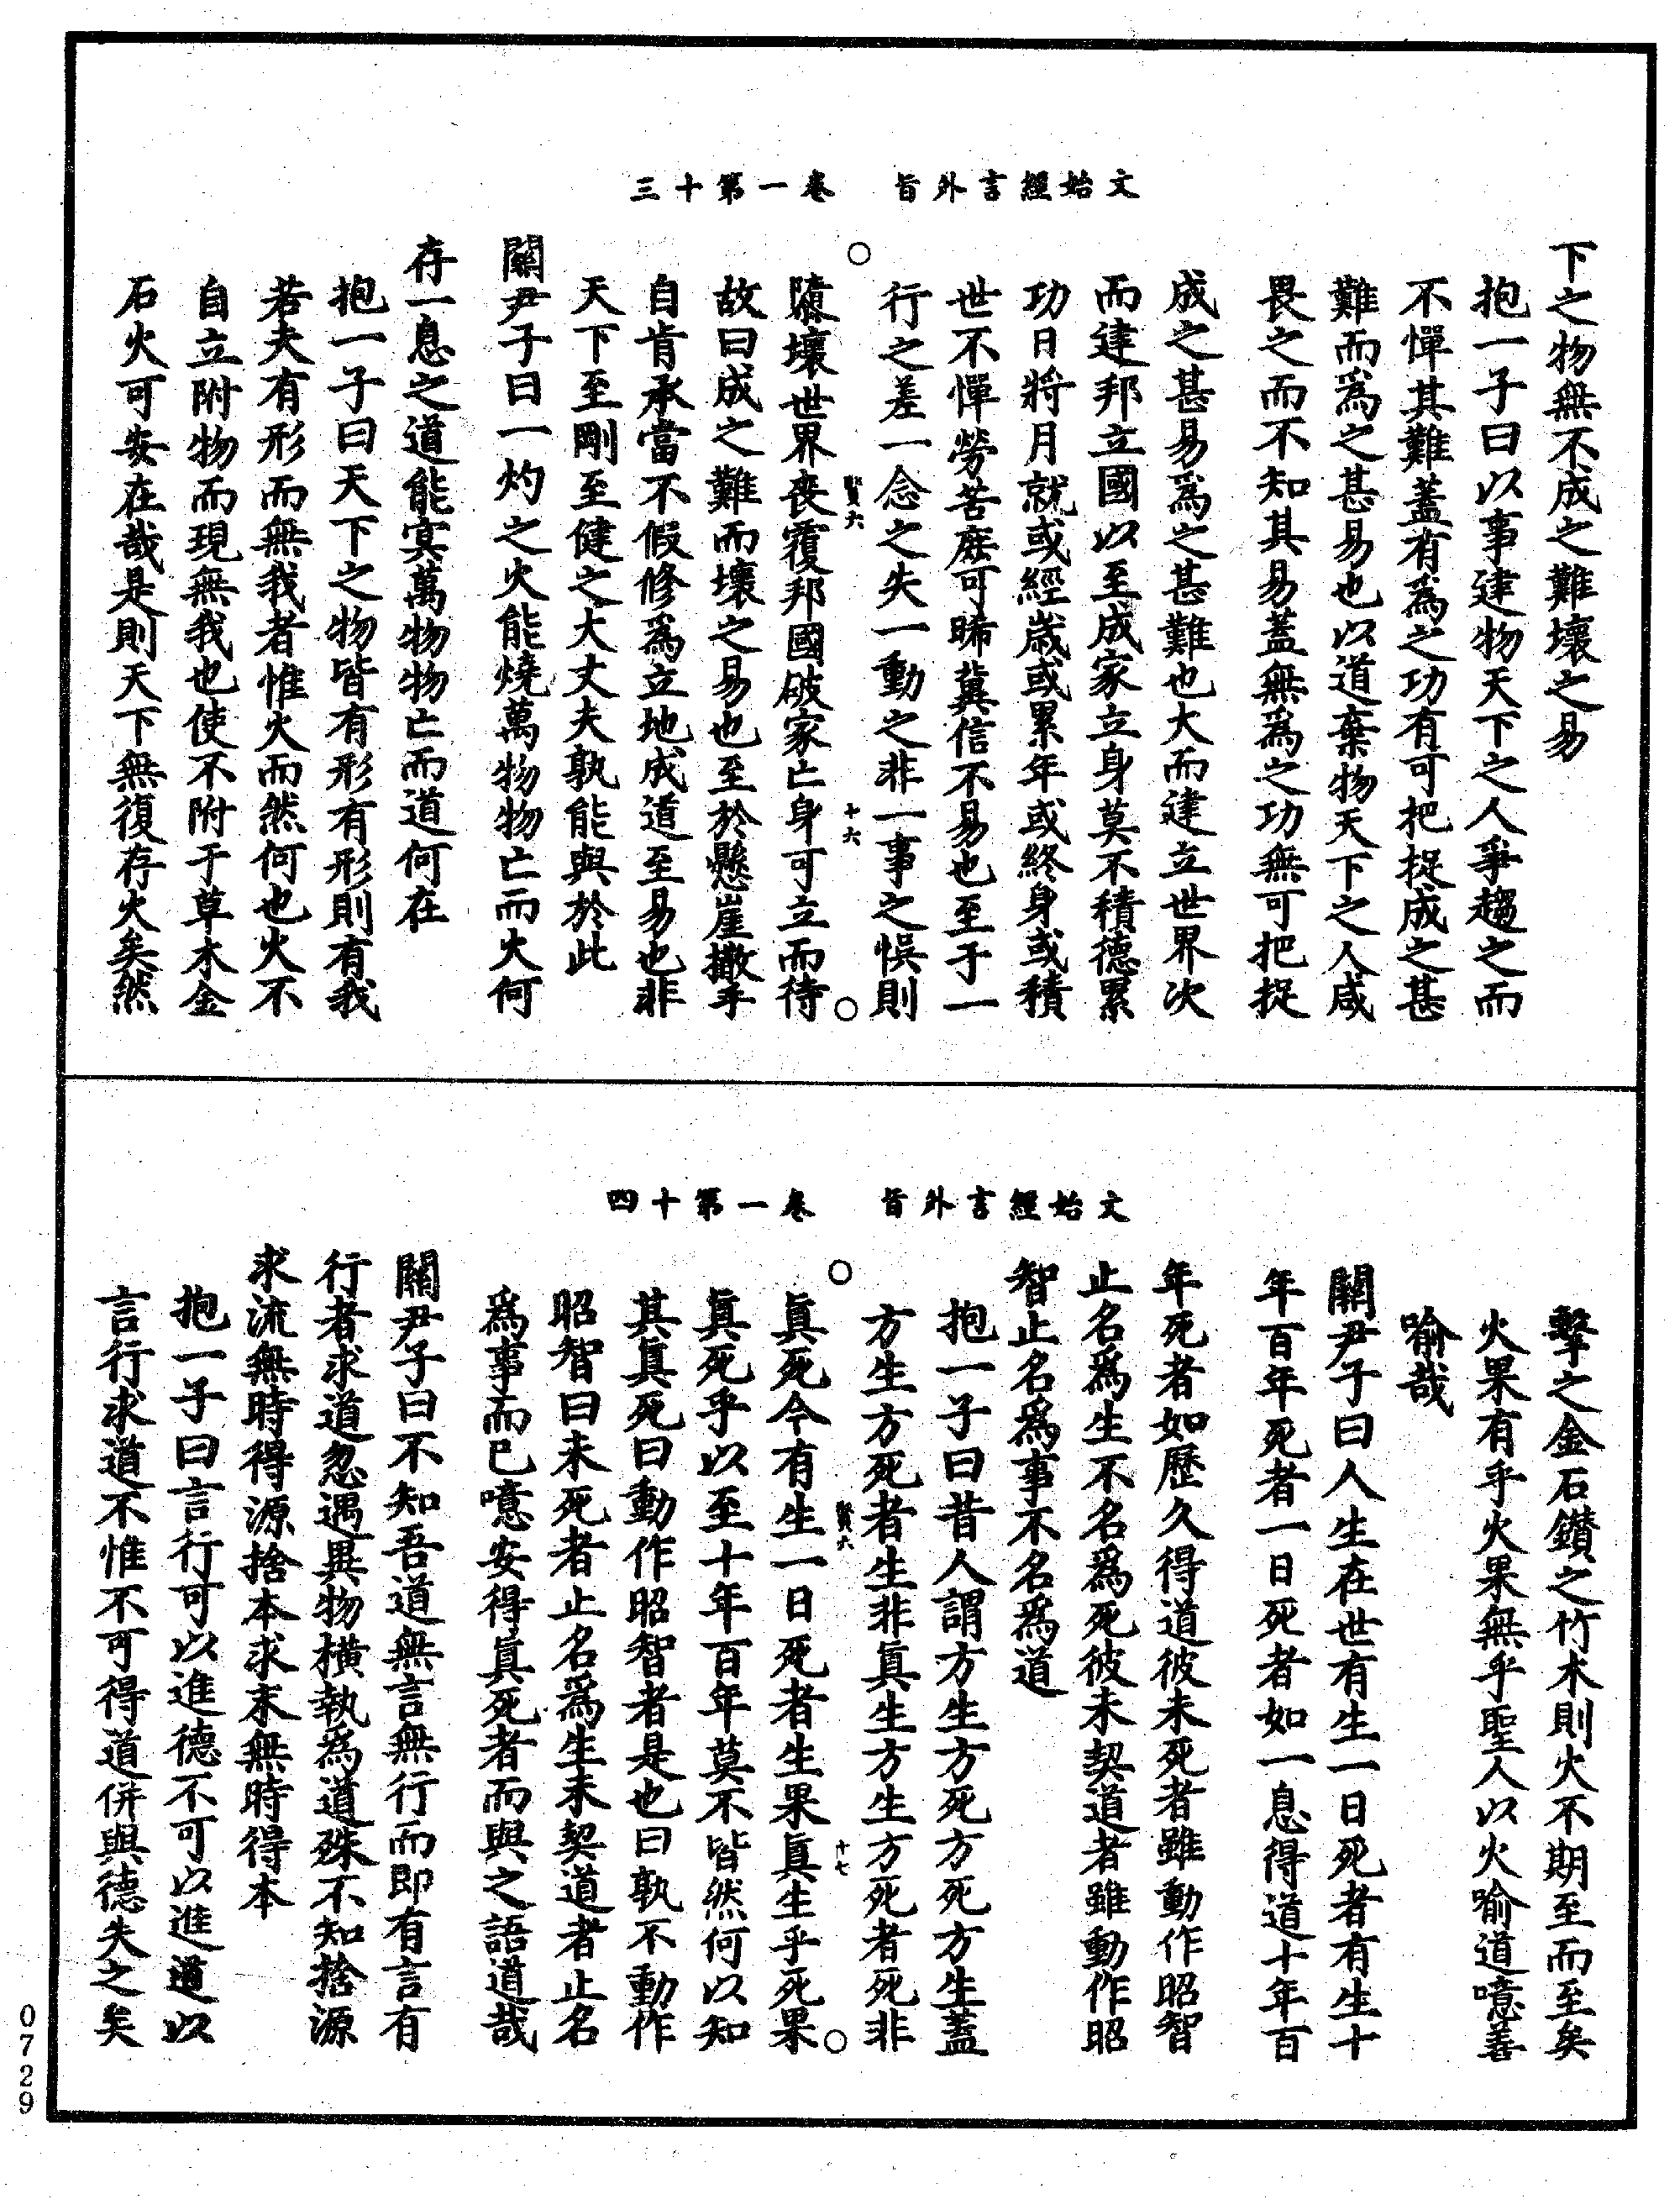 文始經言外旨　卷一第十三
下之物無不成之難壞之易
抱一子曰以事建物天下之人爭趨之而
不憚其難蓋有爲之功有可把捉成之甚
難而爲之甚易也以道棄物天下之人咸
畏之而不知其易蓋無爲之功無可把捉
成之甚易爲之甚難也大而建立世界次
而建邦立國以至成家立身莫不積德累
功日將月就或經歲或累年或終身或積
世不憚勞苦庶可晞冀信不易也至于一
行之差一念之失一動之非一事之悞則
賢六　十六
隳壞世界喪覆邦國破家亡身可立而待
故曰成之難而壞之易也至於懸崖撒手
自肯承當不假修爲立地成道至易也非
天下至剛至健之大丈夫孰能與於此
關尹子曰一灼之火能燒萬物物亡而火何
存一息之道能冥萬物物亡而道何在
抱一子曰天下之物皆有形有形則有我
若夫有形而無我者惟火而然何也火不
自立附物而現無我也使不附于草木金
石火可安在哉是則天下無復存火矣然
文始經言外旨　卷一第十四
擊之金石鑽之竹木則火不期至而至矣
火果有乎火果無乎聖人以火喻道噫善
喻哉
關尹子曰人生在世有生一日死者有生十
年百年死者一日死者如一息得道十年百
年死者如歷久得道彼未死者雖動作昭智
止名爲生不名爲死彼未契道者雖動作昭
智止名爲事不名爲道
抱一子曰昔人謂方生方死方死方生蓋
方生方死者生非眞生方生方死者死非
賢六　十七
眞死今有生一日死者生果眞生乎死果
眞死乎以至十年百年莫不皆然何以知
其眞死曰動作昭智者是也曰孰不動作
昭智曰未死者止名爲生未契道者止名
爲事而已噫安得眞死者而與之語道哉
關尹子曰不知吾道無言無行而即有言有
行者求道忽遇異物橫執爲道殊不知捨源
求流無時得源捨本求末無時得本
抱一子曰言行可以進德不可以進道以
言行求道不惟不可得道併與德失之矣
0729